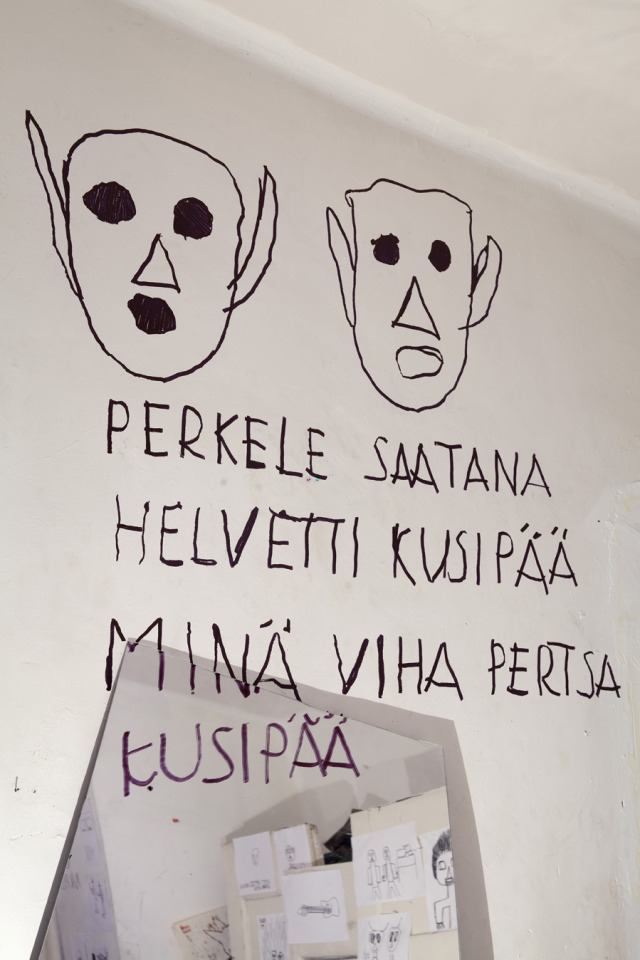 PERKELE SAATANA
HELVETTI KUSIPÄÄ
MINÄ VIHA PERTSA
KUSIPÄÄ